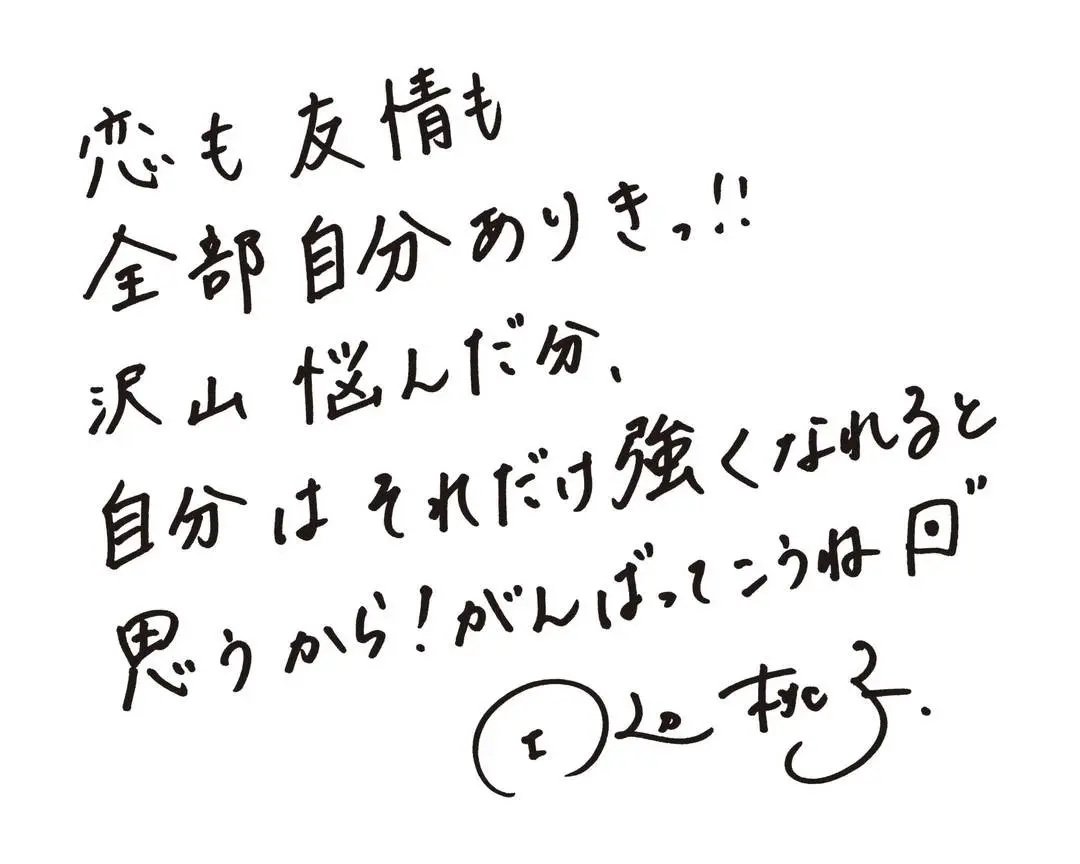 恋も友情も
全部自分ありきっ!!
沢山悩んだ分、
自分はそれだけ強くなれると
思うから!がんばってこうね
桃子.